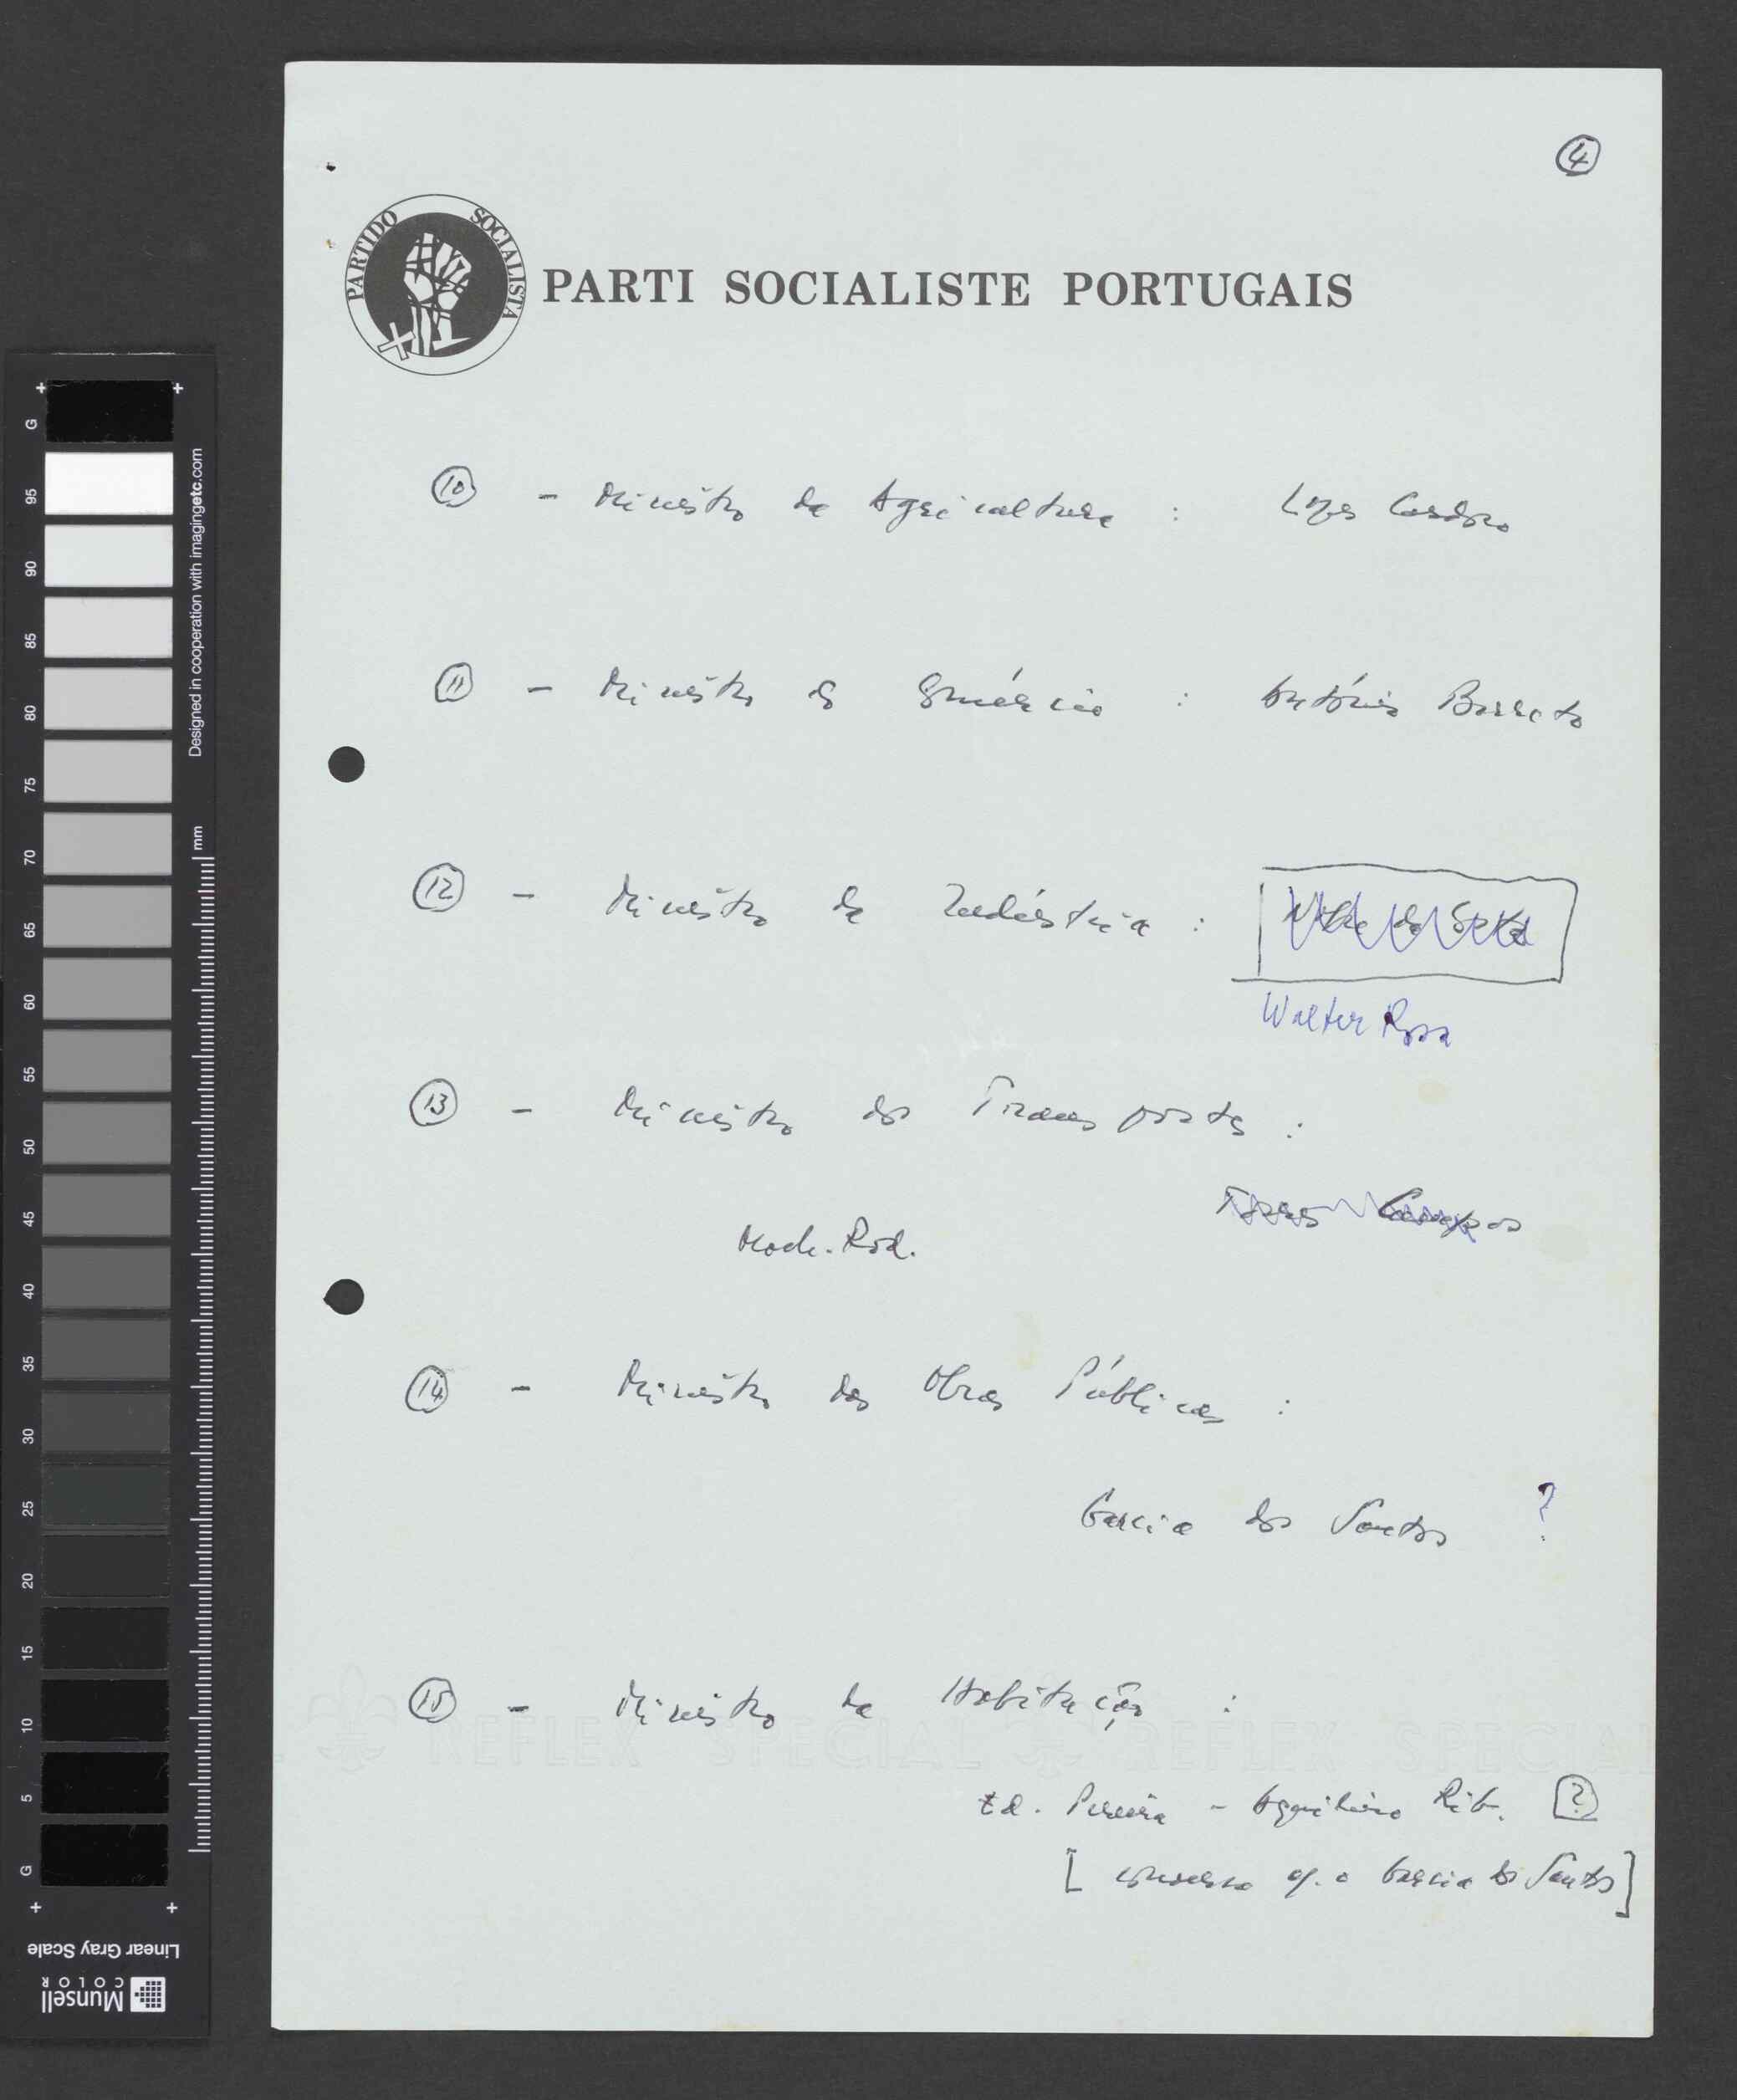 4
PARTIDO SOCIALISTA
PARTI SOCIALISTE PORTUGAIS
10 - Ministro da Agricultura : Lopes Cardoso
11 - Ministro do Comércio : António Barreto
12 - Ministro da Indústria :
Walter Rosa
13 - Ministro dos Transportes :
Campos
Rod.
14 - Ministro das Obras Públicas :
Garcia dos Santos ?
15 - Ministro da Habitação :
Ed. Pereira - Aquilino Rib. ?
[ conversa c/. o Garcia dos Santos ]
REFLEX SPECIAL REFLEX SPECIAL
Designed in cooperation with imagingetc.com
mm
G 95 90 85 80 75 70 65 60 55 50 45 40 35 30 25 20 15 10 5 G
Linear Gray Scale
Munsell
COLOR